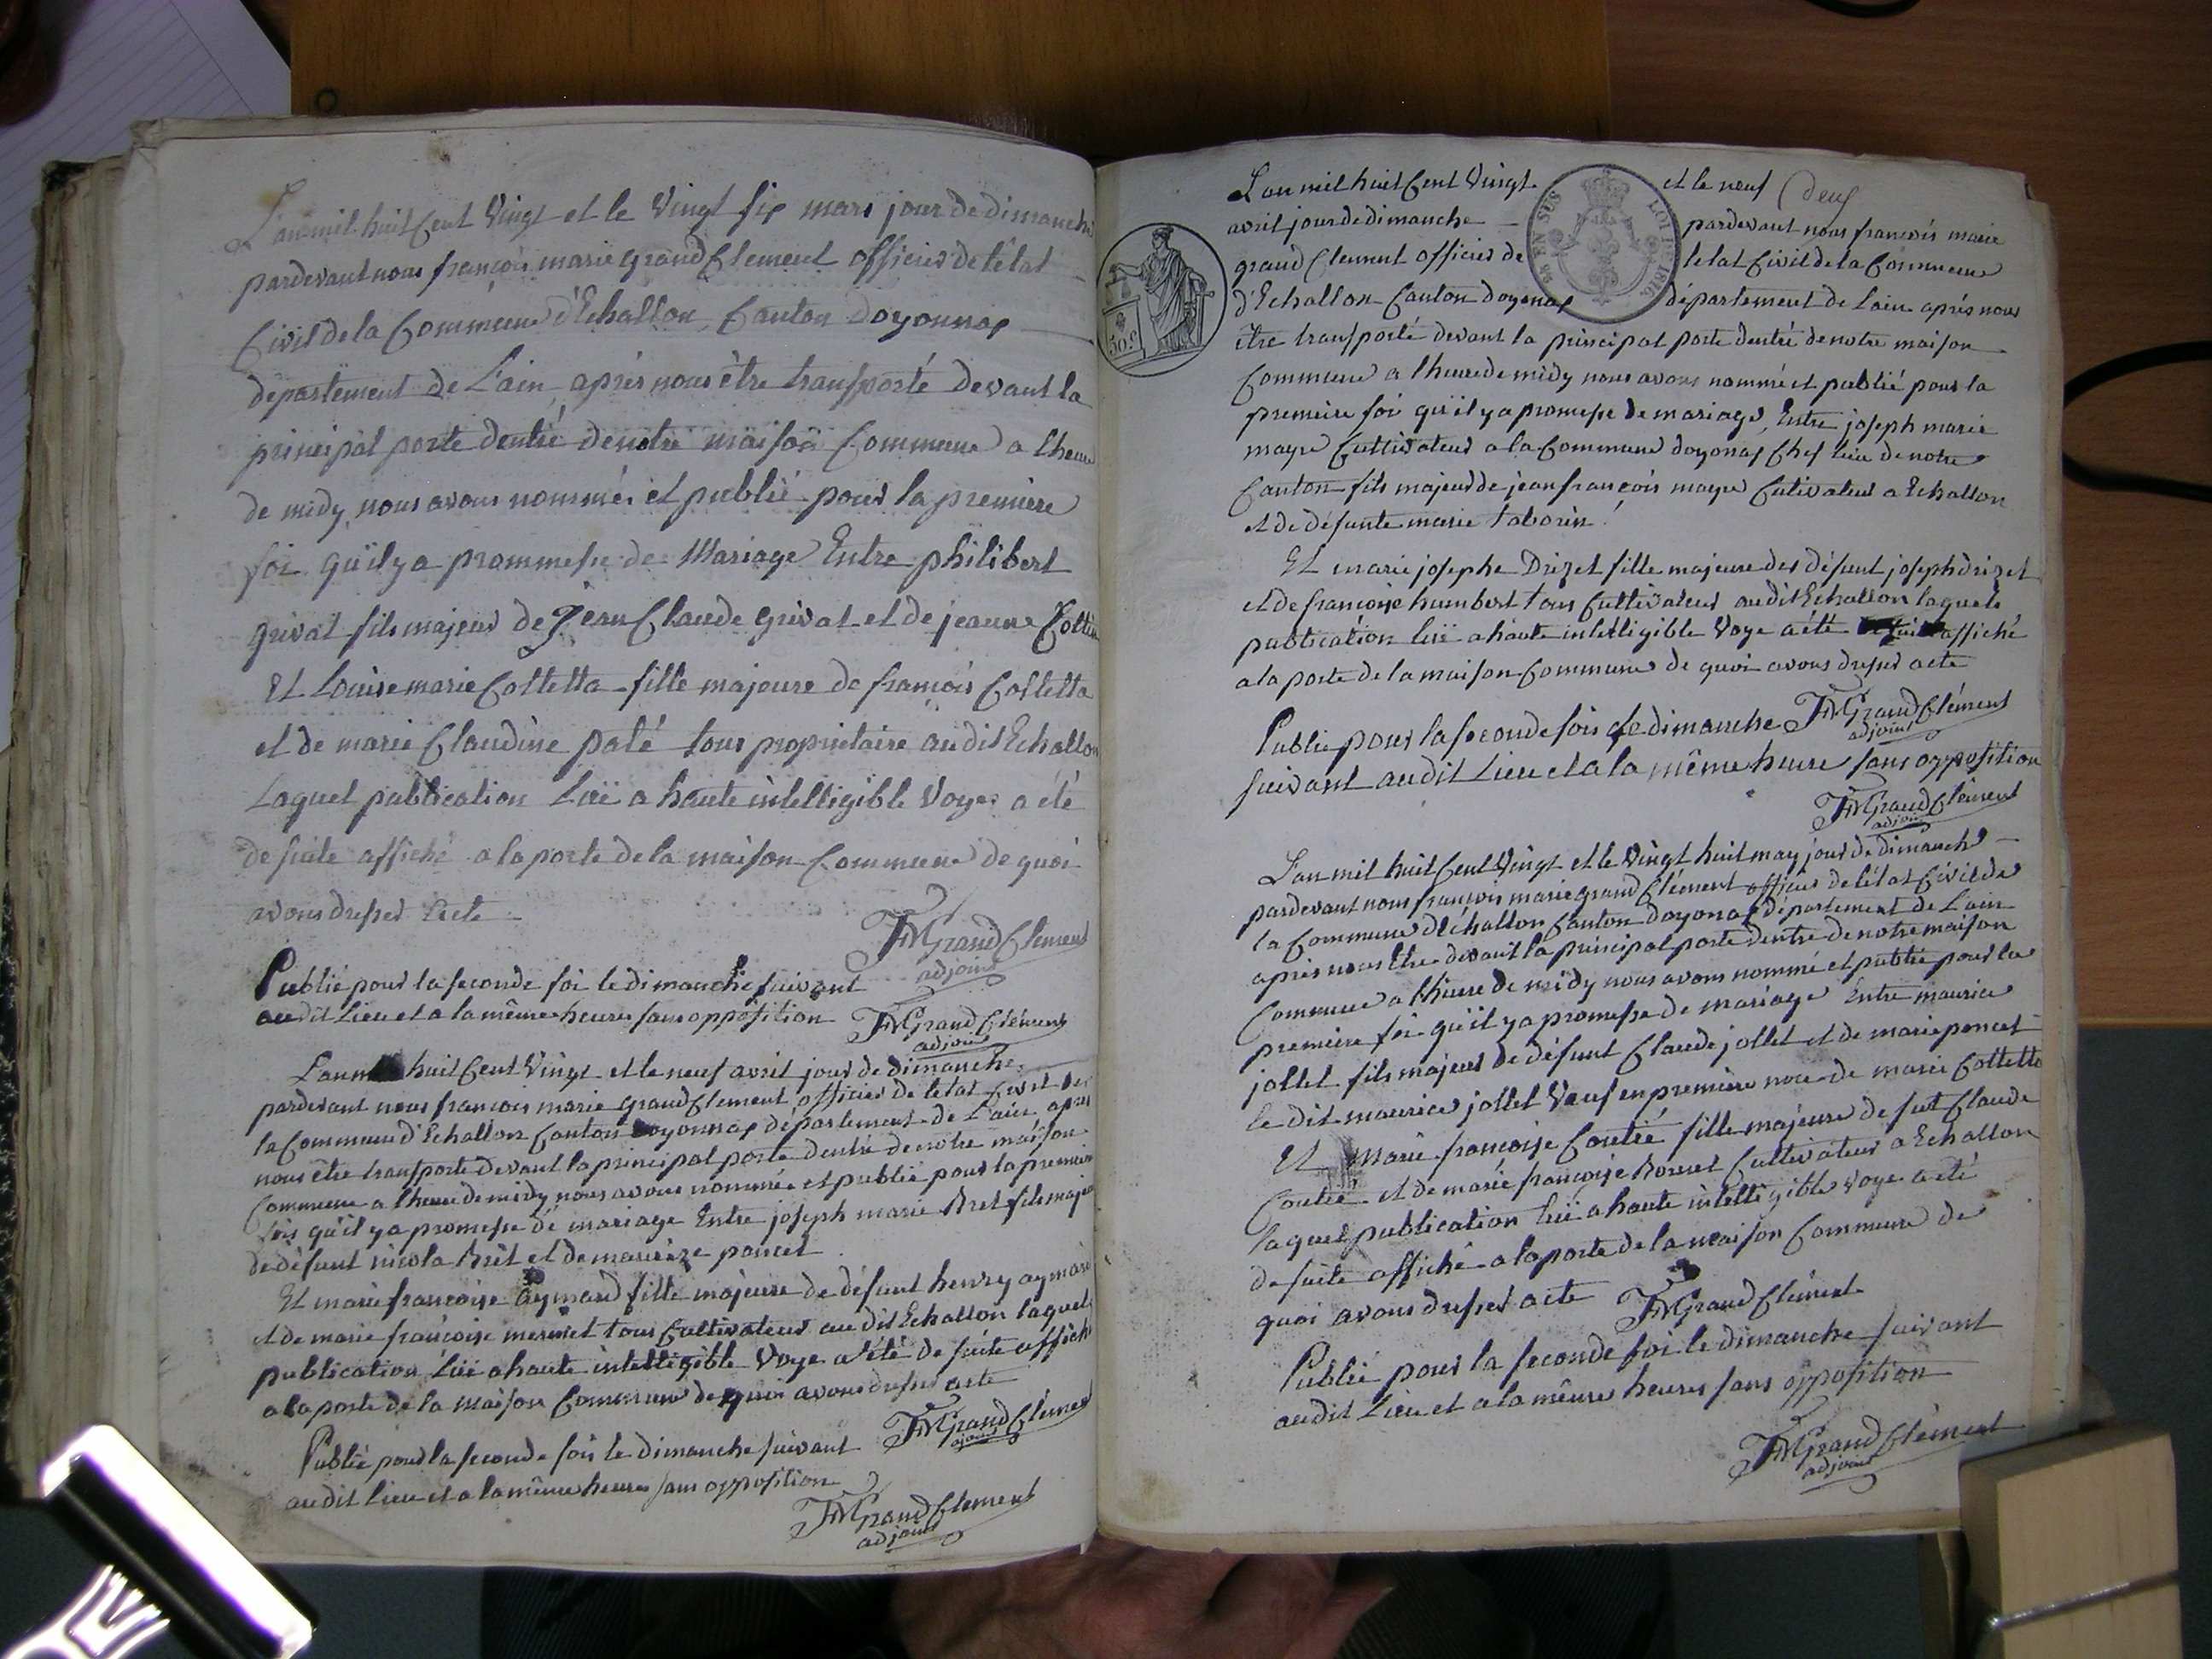 L'an mil huit Cent Vingt et le Vingt six mars jour de dimanche
pardevant nous françois marie grand Clement officier de l'etat
Civil de la Commune d'Echallon Canton Doyonnas
département de L'ain, aprés nous être transporté devant la
principal porte dentré de notre maison Commune a lheure
de midy, nous avons nommés et publié pour la premiere
foi qu'il y a prommesse de Mariage Entre philibert
grivat fils majeur de Jean Claude grivat et de jeanne Cottin
Et Louise marie Colletta fille majeure de françois Colletta
et de marie Claudine palé tous propriétaire audit Echallon
Laquel publication Luë a haute intelligible Voye a été
de suite affiché a la porte de la maison Commune de quoi
avons dresser acte
FMGrandClement
adjoint
Publié pour la seconde foi le dimanche suivant
audit Lieu et a la même heures sans oppösition
FMGrandClément
adjoint
L'an huit Cent Vingt et le neuf avril jour de dimanche
pardevant nous francois marie grand Clement officier de letat Civil de
la Commune d'Echallon Canton Doyonnas département de L'ain aprés
nous être transporté devant la principal porte dentré de notre maison
Commune a lheure de midy nous avons nommée et publié pour la premiere
fois qu'il y a promesse de mariage Entre joseph marie Bret fils majeur
de défunt nicola Brét et de poncet
Et marie françoise Aymard fille majeure de défunt henry aymard
et de marie françoise mermet tous Cultivateur audit Echallon laquel
publication Luë a haute intelligible Voye a été de suite affiché
a la porte de la maison Commune de quoi avons dresser acte
FMGrandClément
adjoint
Publié pour la seconde fois le dimanche suivant
audit lieu et a la même heures sans opposition
FMGrandClement
adjoint
deuf
L'an mil huit Cent Vingt et le neuf
avril jour de dimanche pardevant nous francois marie
grand Clement officier de letat Civil de la Commune
d'Echallon Canton doyonas département de Lain aprés nous
être transporté devant la principal porte dentré de notre maison
Commune a lheure de midy nous avons nommé et publié pour la
premiere foi qu'il y a promesse de mariage, Entre joseph marie
mayre Cultivateur a la Commune doyonas Chef lieu de notre
Canton fils majeur de jean françois mayre Cultivateur a Echallon
et de défunte marie taborin
Et marie josephe Drizet fille majeure des défunt joseph drizet
et de françoise humbert tous Cultivateur audit Echallon laquele
publication luë a haute intelligible Voye a été affiché
a la porte de la maison Commune de quoi avons dresser acte
FMGrandClément
adjoint
Publié pour la seconde fois le dimanche
suivant audit Lieu et a la même heure sans opposition
FMGrandClément
adjoint
L'an mil huit Cent Vingt et le Vingt huit may jour de dimanche
pardevant nous françois marie grand Clément officier de létat Civil de
la Commune d'échallon Canton doyonas département de L'ain
aprés nous être devant la principal porte dentre de notre maison
Commune a lheure de midy nous avons nommé et publié pour la
premiere foi qu'il y a promesse de mariage Entre maurice
jollet fils majeur de défunt Claude jollet et de marie poncet
le dit maurice jollet Veuf en premiere noce de marie Colletta
Et Marie françoise Coutié fille majeure de fut Claude
Coutié et de marie françoise Cultivateur a Echallon
laquel publication luë a haute intelligible Voye a été
de suite affiché a la porte de la maison Commune de
quoi avons dresser acte FMGrandClément
Publié pour la seconde foi le dimanche suivant
audit Lieu et a la même heures sans opposition
FMGrandClément
adjoint
50 C.
EN SUS
LOI DE 1816